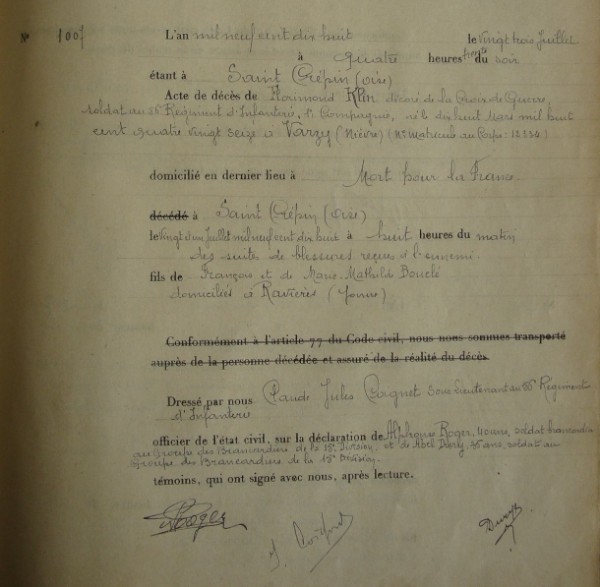 N° 1007 L'an mil neuf cent dix huit le vingt trois Juillet
à quatre heures trente du soir
étant à Saint Crépin (Oise)
Acte de décès de Florimond Klin décoré de la Croix de Guerre,
soldat au 56 Régiment d'Infanterie, Compagnie, né le dix huit Mars mil huit
cent quatre vingt seize à Varzy (Nièvre) (N° Matricule au Corps : 12334)
domicilié en dernier lieu à Mort pour la France
décédé à Saint Crépin (Oise)
le vingt et un Juillet mil neuf cent dix huit à huit heures du matin
des suites de blessures reçues à l'ennemi
fils de François et de Marie-Mathilde Bouclé
domiciliés à Ravières (Yonne)
Conformément à l'article 77 du Code civil, nous nous sommes transporté
auprès de la personne décédée et assuré de la réalité du décès.
Dressé par nous Claude Jules Coignet sous Lieutenant au 56 Régiment
d'Infanterie
officier de l'état civil, sur la déclaration de Alphonse Roger, 40 ans, soldat brancardier
au Groupe des Brancardiers de la 15e Division, et de Abel 35 ans, soldat au
Groupe des Brancardiers de la 15e Division.
témoins, qui ont signé avec nous, après lecture.
Roger